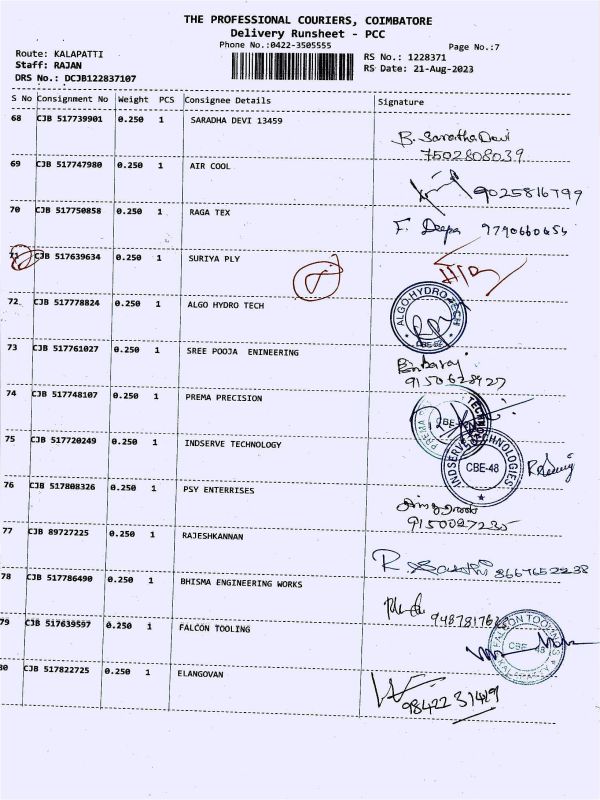 THE PROFESSIONAL COURIERS, COIMBATORE
Delivery Runsheet - PCC
Phone No.:0422-3505555
Page No.:7
Route: KALAPATTI
RS No.: 1228371
Staff: RAJAN
RS Date: 21-Aug-2023
DRS No.: DCJB122837107
S No Consignment No Weight PCS Consignee Details Signature
68 CJB 517739901 0.250 1 SARADHA DEVI 13459
B. Saratha Devi
7502808039
69 CJB 517747980 0.250 1 AIR COOL
9025816799
70 CJB 517750858 0.250 1 RAGA TEX
F. Deepa 9790660655
71 CJB 517639634 0.250 1 SURIYA PLY
72 CJB 517778824 0.250 1 ALGO HYDRO TECH
ALGO HYDRO TECH
73 CJB 517761027 0.250 1 SREE POOJA ENINEERING
9150628927
74 CJB 517748107 0.250 1 PREMA PRECISION
PREMA
75 CJB 517720249 0.250 1 INDSERVE TECHNOLOGY
INDSERVE TECHNOLOGIES
CBE-48
76 CJB 517808326 0.250 1 PSY ENTERRISES
9150027235
77 CJB 89727225 0.250 1 RAJESHKANNAN
8667652238
78 CJB 517786490 0.250 1 BHISMA ENGINEERING WORKS
79 CJB 517639597 0.250 1 FALCON TOOLING
FALCON TOOLINGS
CBE - 48
KALAPATTY
80 CJB 517822725 0.250 1 ELANGOVAN
9842231419